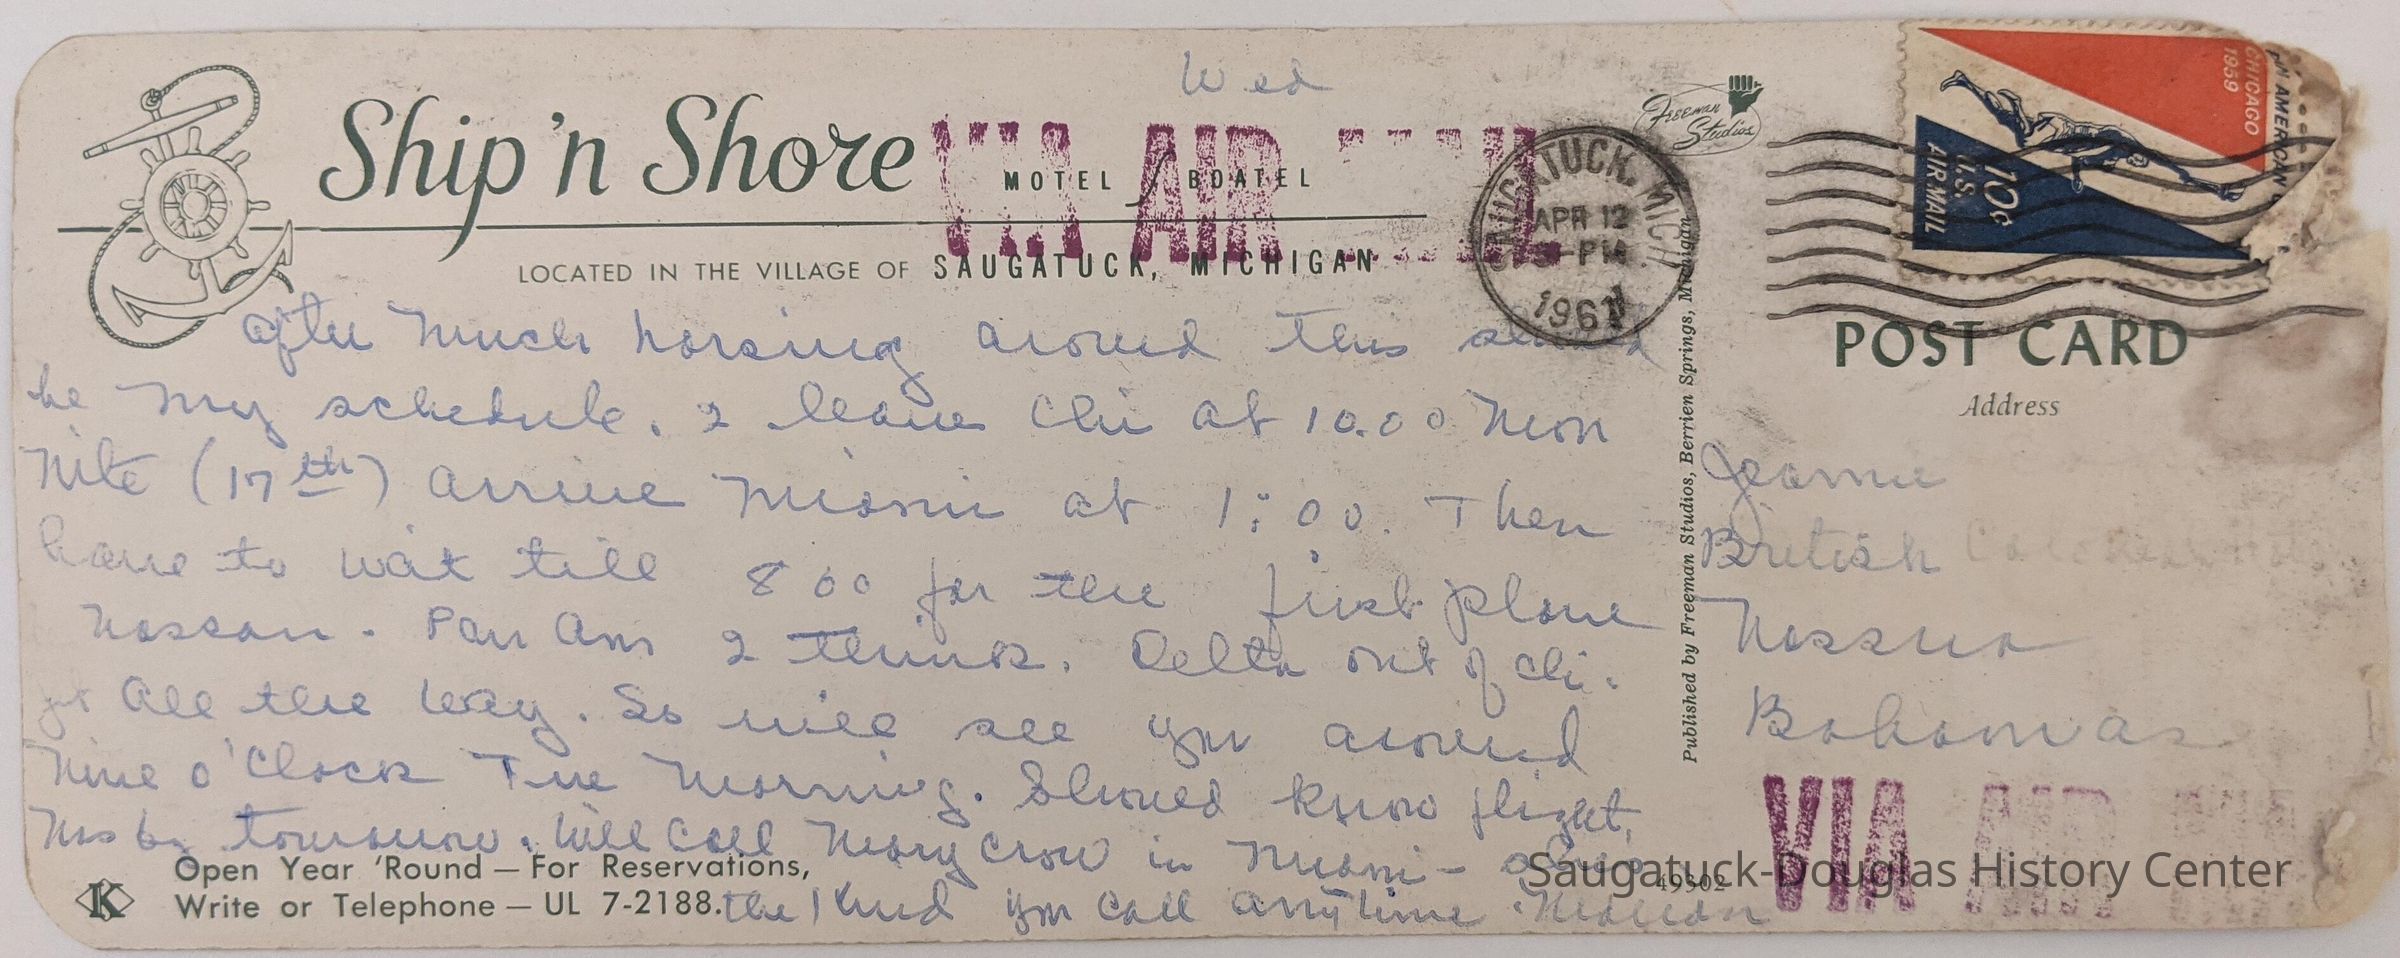 Wed
Ship 'n Shore
MOTEL / BOATEL
LOCATED IN THE VILLAGE OF SAUGATUCK, MICHIGAN
VIA AIR MAIL
SAUGATUCK, MICH
APR 12
PM
1961
Freeman Studios
PAN AMERICAN
CHICAGO
1959
10¢
U.S.
AIR MAIL
after much horsing around this should
be my schedule. I leave Chi at 10.00 Mon
Nite (17th) arrive Miami at 1:00. Then
have to wait till 8 00 for the first plane
Nassau. Pan Am I think. Delta out of Chi.
all the way. So will see you around
Nine o'Clock Tue Morning. Should know flight
by tomorrow. Will call Mary Crow in Miami -
the kind you call anytime.
Open Year 'Round — For Reservations,
Write or Telephone — UL 7-2188.
K
Published by Freeman Studios, Berrien Springs, Michigan
POST CARD
Address
Jeanne
British
Nassau
Bahamas
VIA AIR
49302
Saugatuck-Douglas History Center